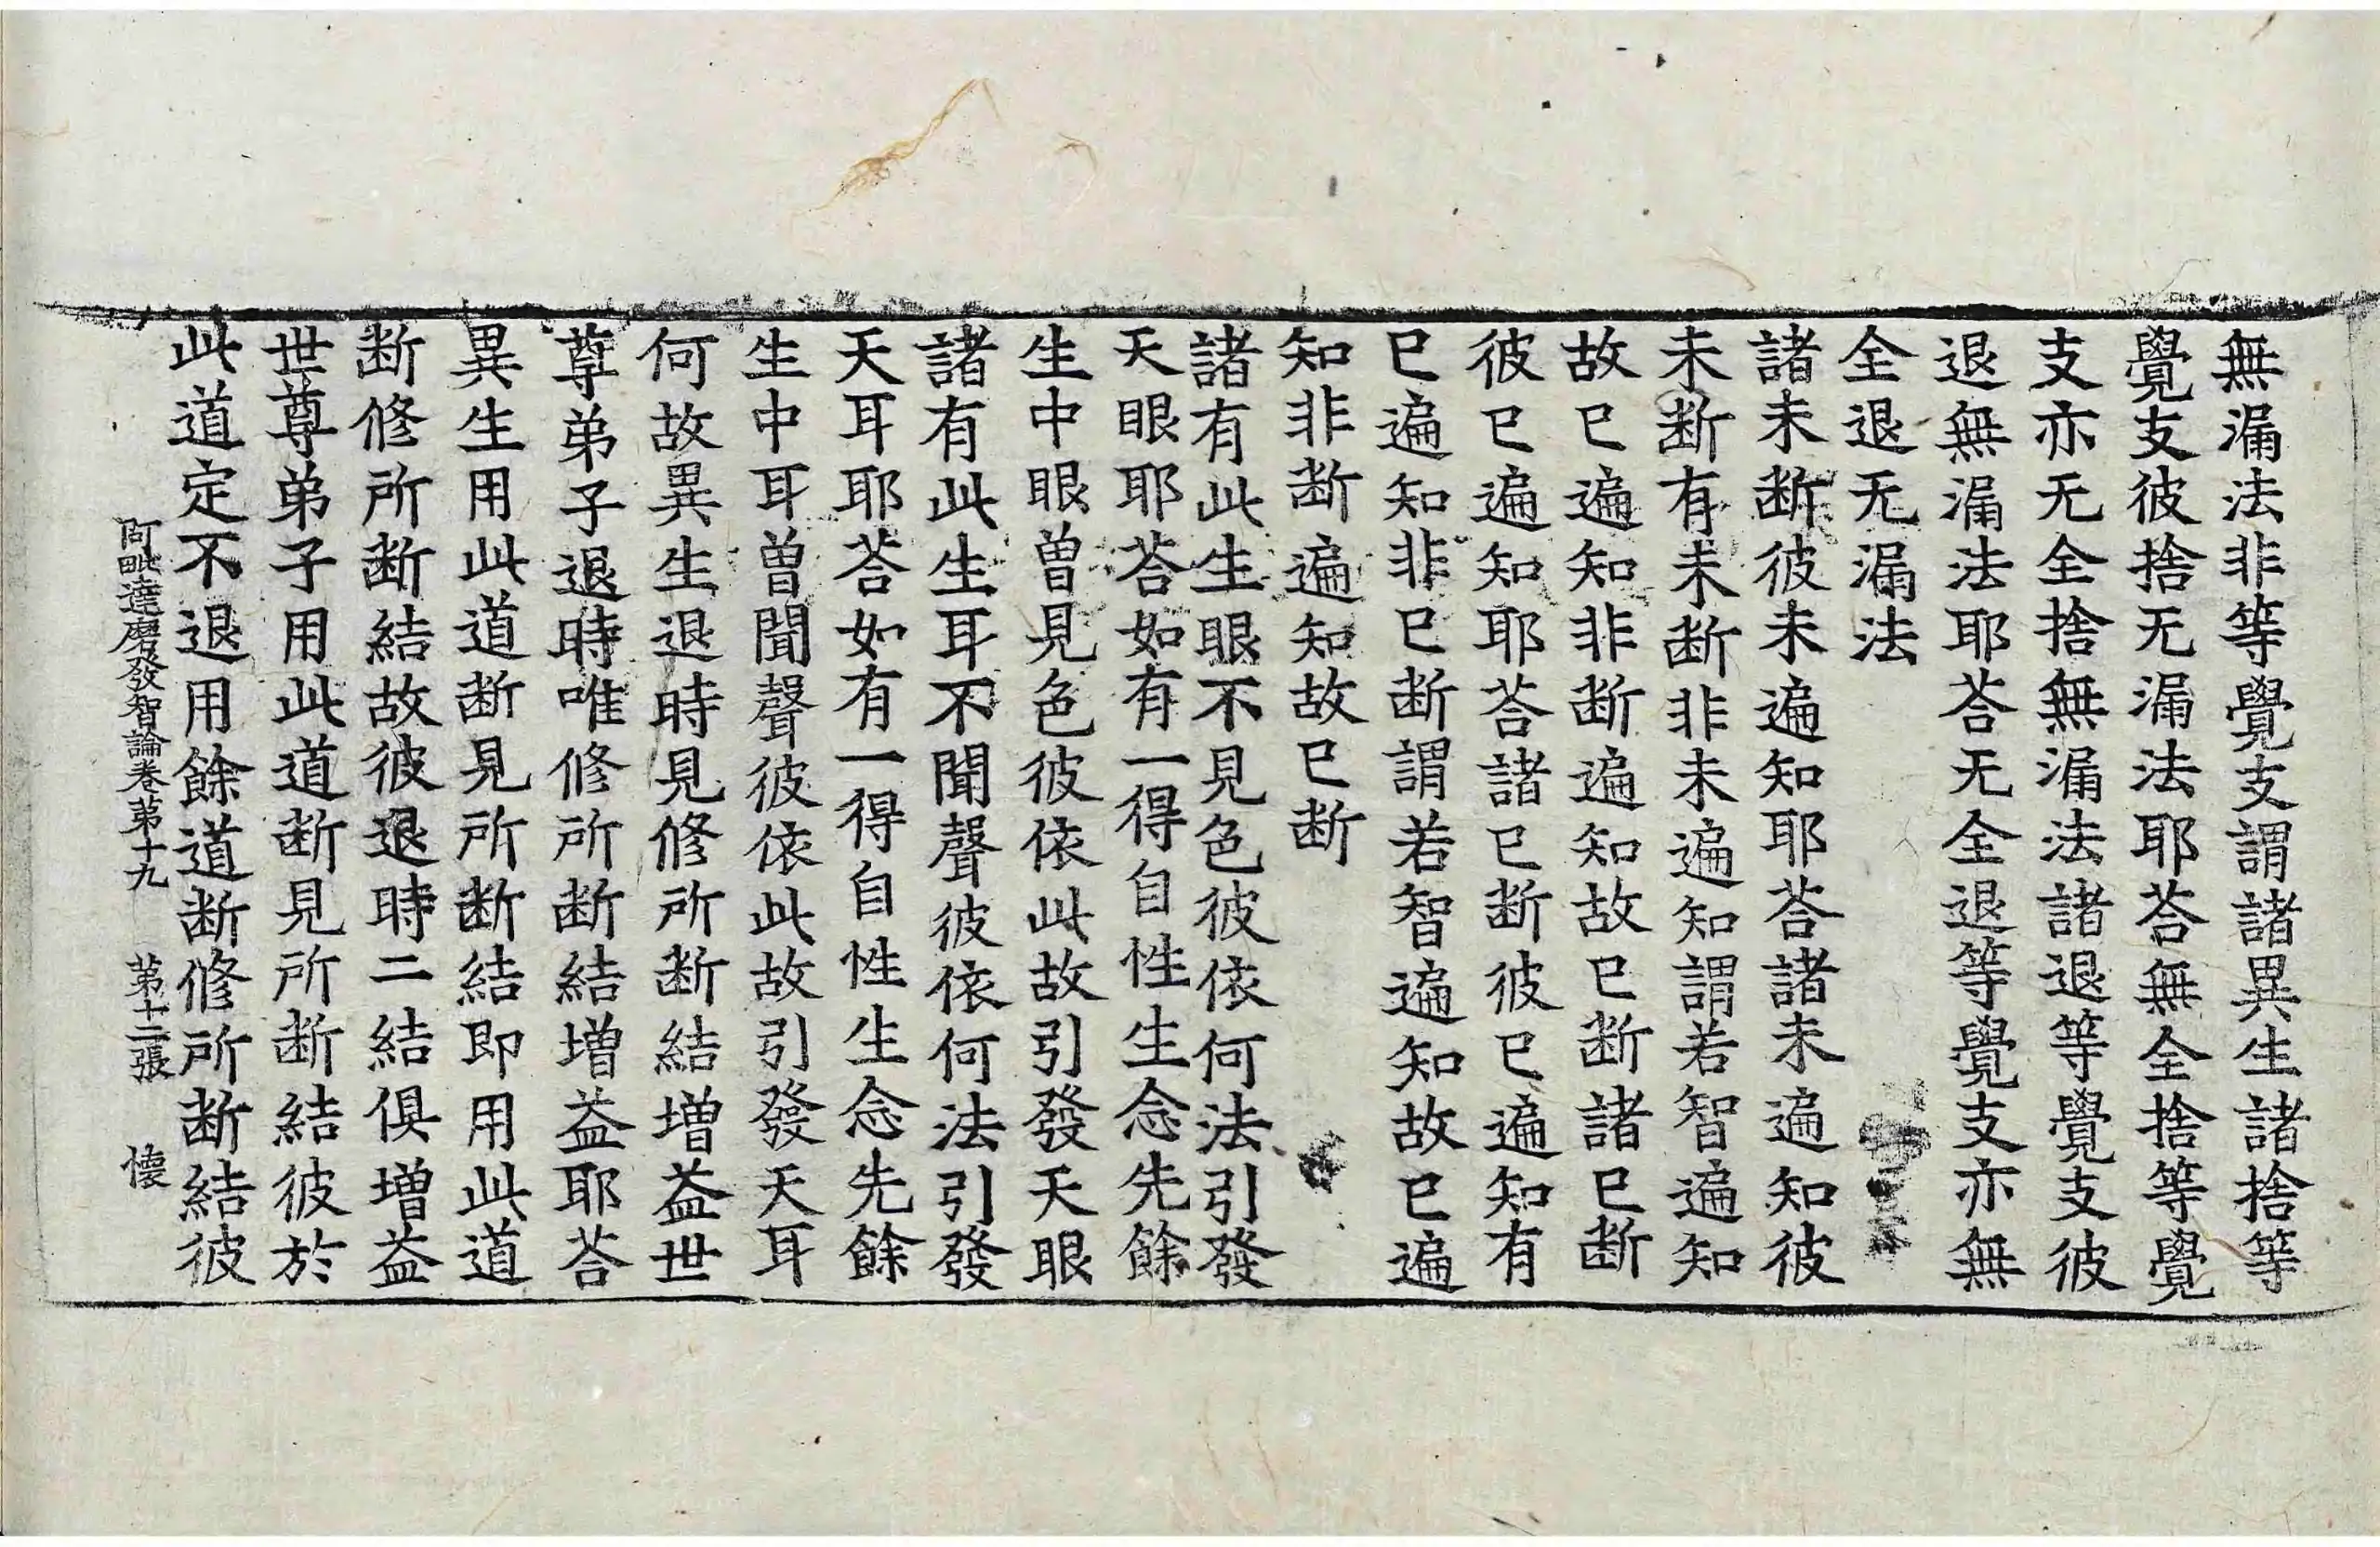 無漏法非等覺支謂諸異生諸捨等
覺支彼捨无漏法耶荅無全捨等覺
支亦无全捨無漏法諸退等覺支彼
退無漏法耶荅无全退等覺支亦無
全退无漏法
諸未断彼未遍知耶荅諸未遍知彼
未断有未断非未遍知謂若智遍知
故已遍知非断遍知故已断諸已断
彼已遍知耶荅諸已断彼已遍知有
已遍知非已断謂若智遍知故已遍
知非断遍知故已断
諸有此生眼不見色彼依何法引發
天眼耶荅如有一得自性生念先餘
生中眼曽見色彼依此故引發天眼
諸有此生耳不聞聲彼依何法引發
天耳耶荅如有一得自性生念先餘
生中耳曽聞聲彼依此故引發天耳
何故異生退時見修所断結増益世
尊弟子退時唯修所断結増益耶荅
異生用此道断見所断結即用此道
断修所断結故彼退時二結俱増益
世尊弟子用此道断見所断結彼於
此道定不退用餘道断修所断結彼
阿毗達磨發智論卷苐十九 苐十二張 懐